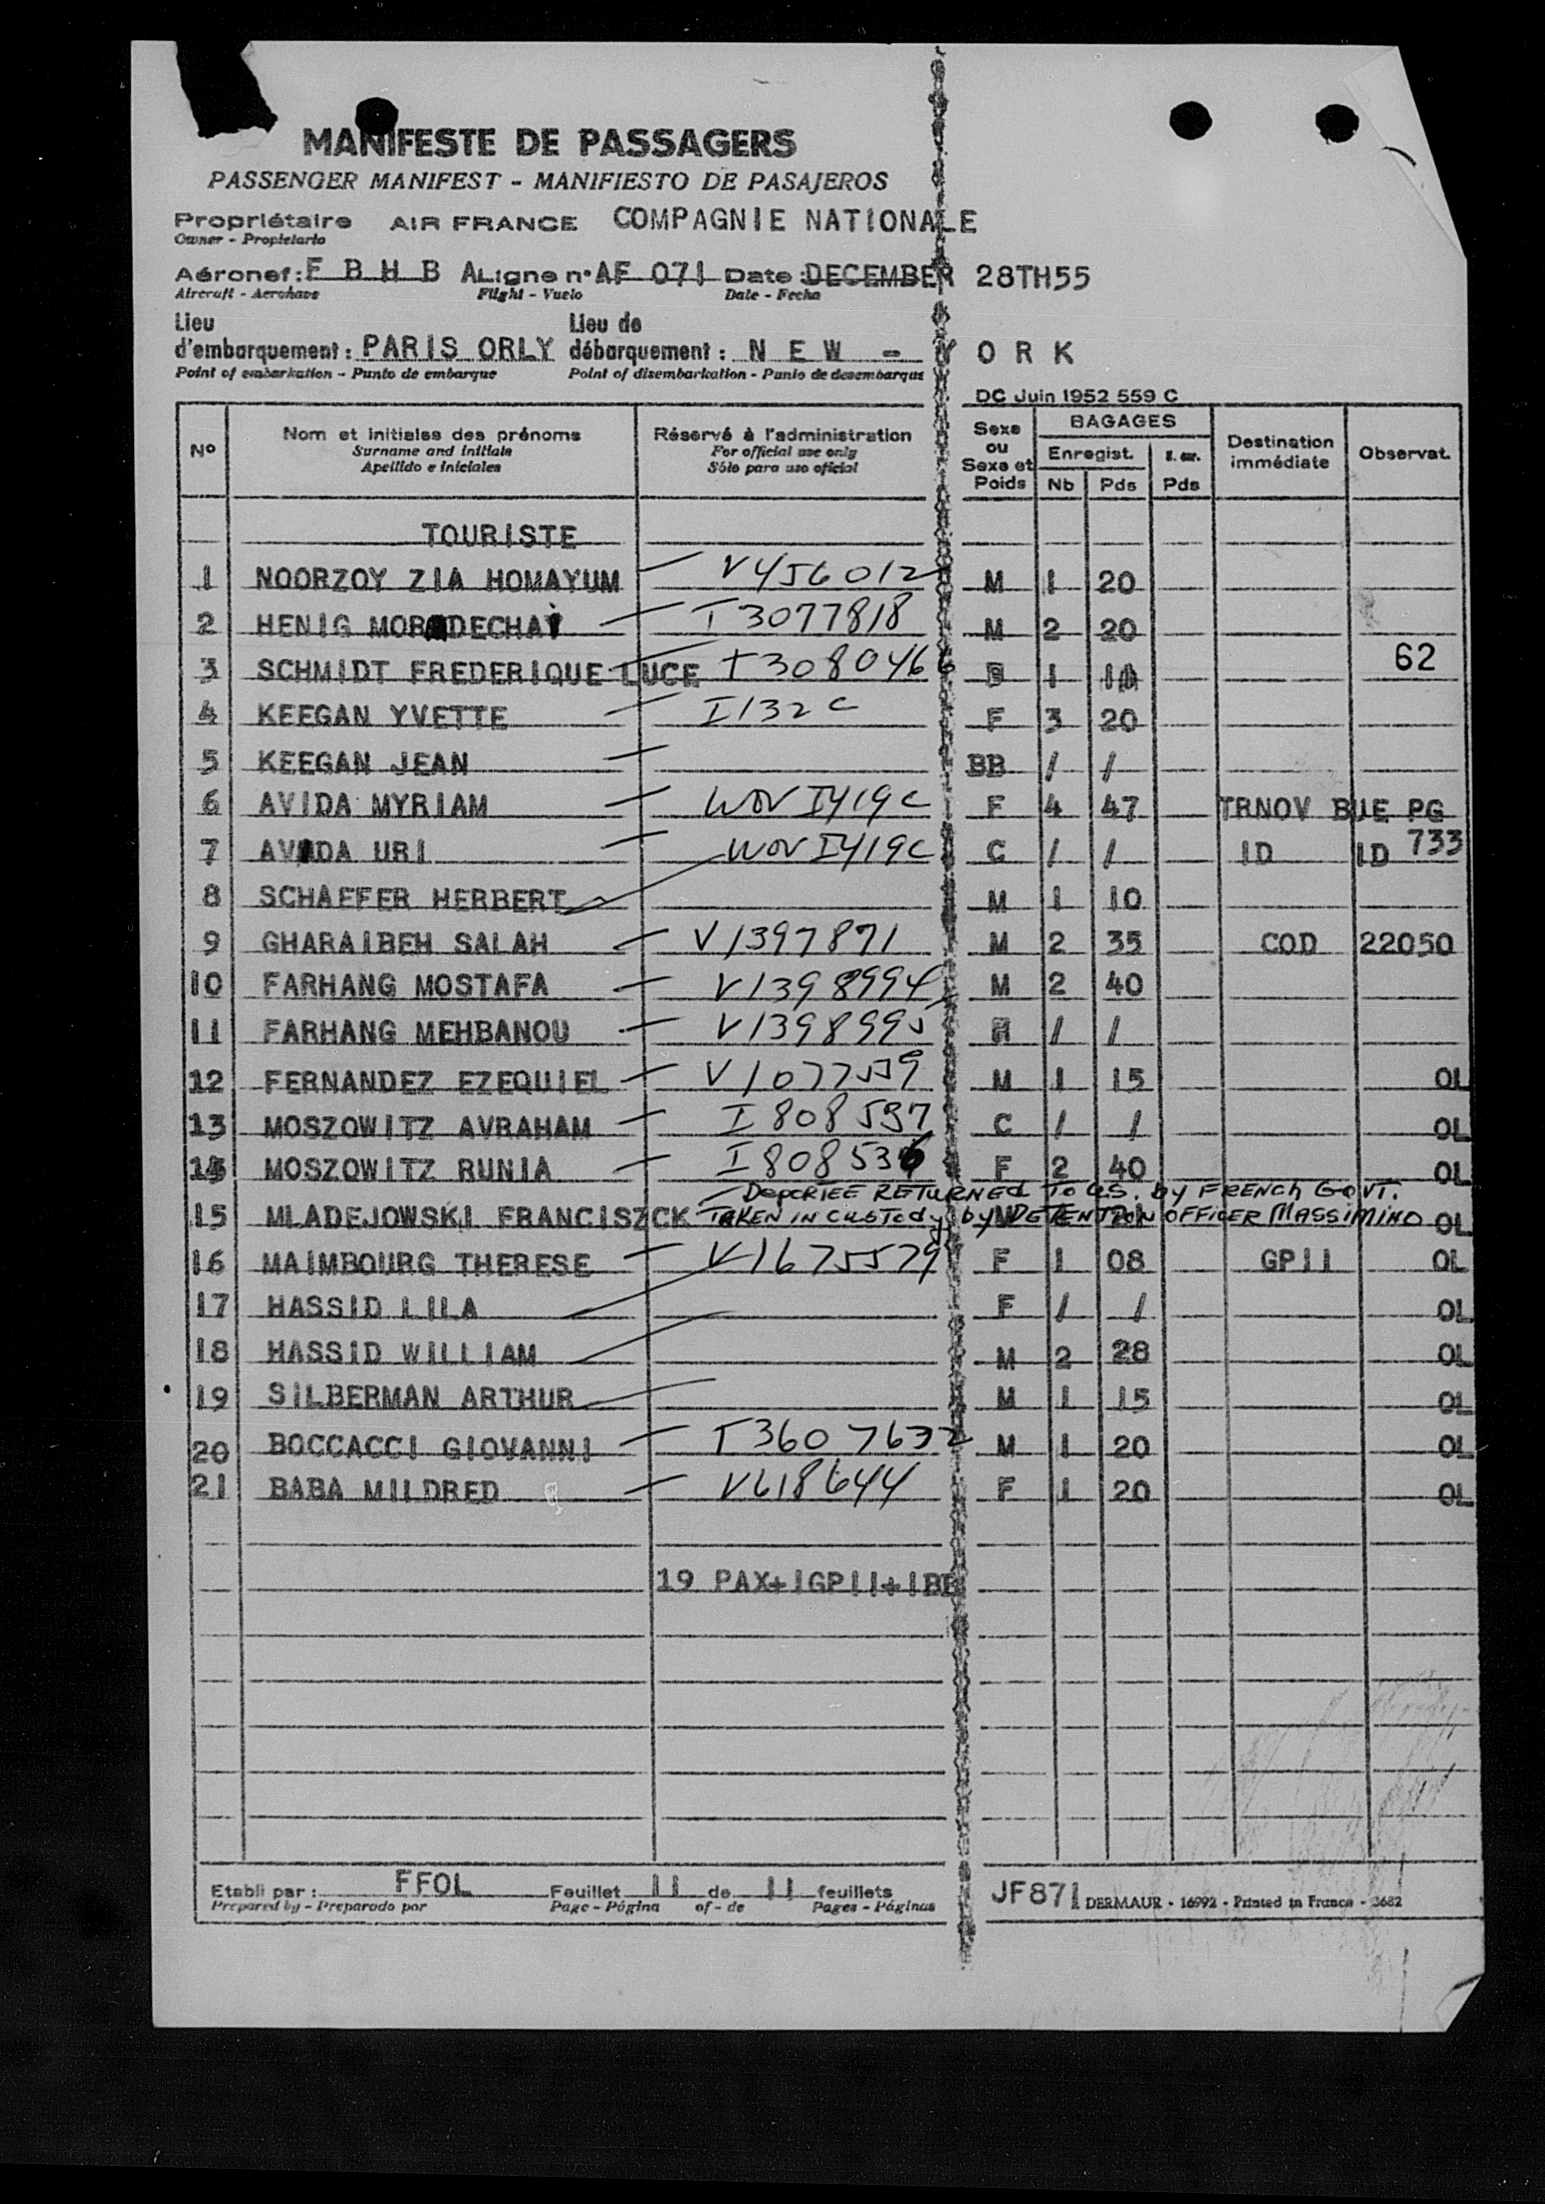 MANIFESTE DE PASSAGERS
PASSENGER MANIFEST - MANIFIESTO DE PASAJEROS
Propriétaire AIR FRANCE COMPAGNIE NATIONALE
Owner - Propietario
Aéronef: F B H B A Ligne n° AF 071 Date: DECEMBER 28TH55
Aircraft - Aeronave Flight - Vuelo Date - Fecha
Lieu d'embarquement: PARIS ORLY Lieu de débarquement: N E W - Y O R K
Point of embarkation - Punto de embarque Point of disembarkation - Punto de desembarque
DC Juin 1952 559 C
Nº Nom et initiales des prénoms Réservé à l'administration Sexe ou Sexe et Poids BAGAGES Destination immédiate Observat.
Surname and initials For official use only Enregist.
Apellido e iniciales Sólo para uso oficial Nb Pds Pds
TOURISTE
1 NOORZOY ZIA HOMAYUM V456012 M 1 20
2 HENIG MORDECHAI T3077818 M 2 20
3 SCHMIDT FREDERIQUE LUCE T3080466 1 62
4 KEEGAN YVETTE I132C F 3 20
5 KEEGAN JEAN BB / /
6 AVIDA MYRIAM WOV I419C F 4 47 TRNOV BUE PG
7 AVIDA URI WOV I419C C / / ID ID 733
8 SCHAEFER HERBERT M 1 10
9 GHARAIBEH SALAH V1397871 M 2 35 COD 22050
10 FARHANG MOSTAFA V1398994 M 2 40
11 FARHANG MEHBANOU V1398995 / /
12 FERNANDEZ EZEQUIEL V1077559 M 1 15 OL
13 MOSZOWITZ AVRAHAM I808537 C / / OL
14 MOSZOWITZ RUNIA I808536 F 2 40 OL
DEPORTEE RETURNED TO U.S. by FRENCH GOVT.
15 MLADEJOWSKI FRANCISZCK TAKEN IN CUSTODY by DETENTION OFFICER MASSIMINO OL
16 MAIMBOURG THERESE V1675579 F 1 08 GP11 OL
17 HASSID LILA F / / OL
18 HASSID WILLIAM M 2 28 OL
19 SILBERMAN ARTHUR M 1 15 OL
20 BOCCACCI GIOVANNI T3607632 M 1 20 OL
21 BABA MILDRED V618644 F 1 20 OL
19 PAX+1GP11+1BB
Etabli par: FFOL Feuillet 11 de 11 feuillets JF871 DERMAUR - 16992 - Printed in France - 3682
Prepared by - Preparado por Page - Página of - de Pages - Páginas